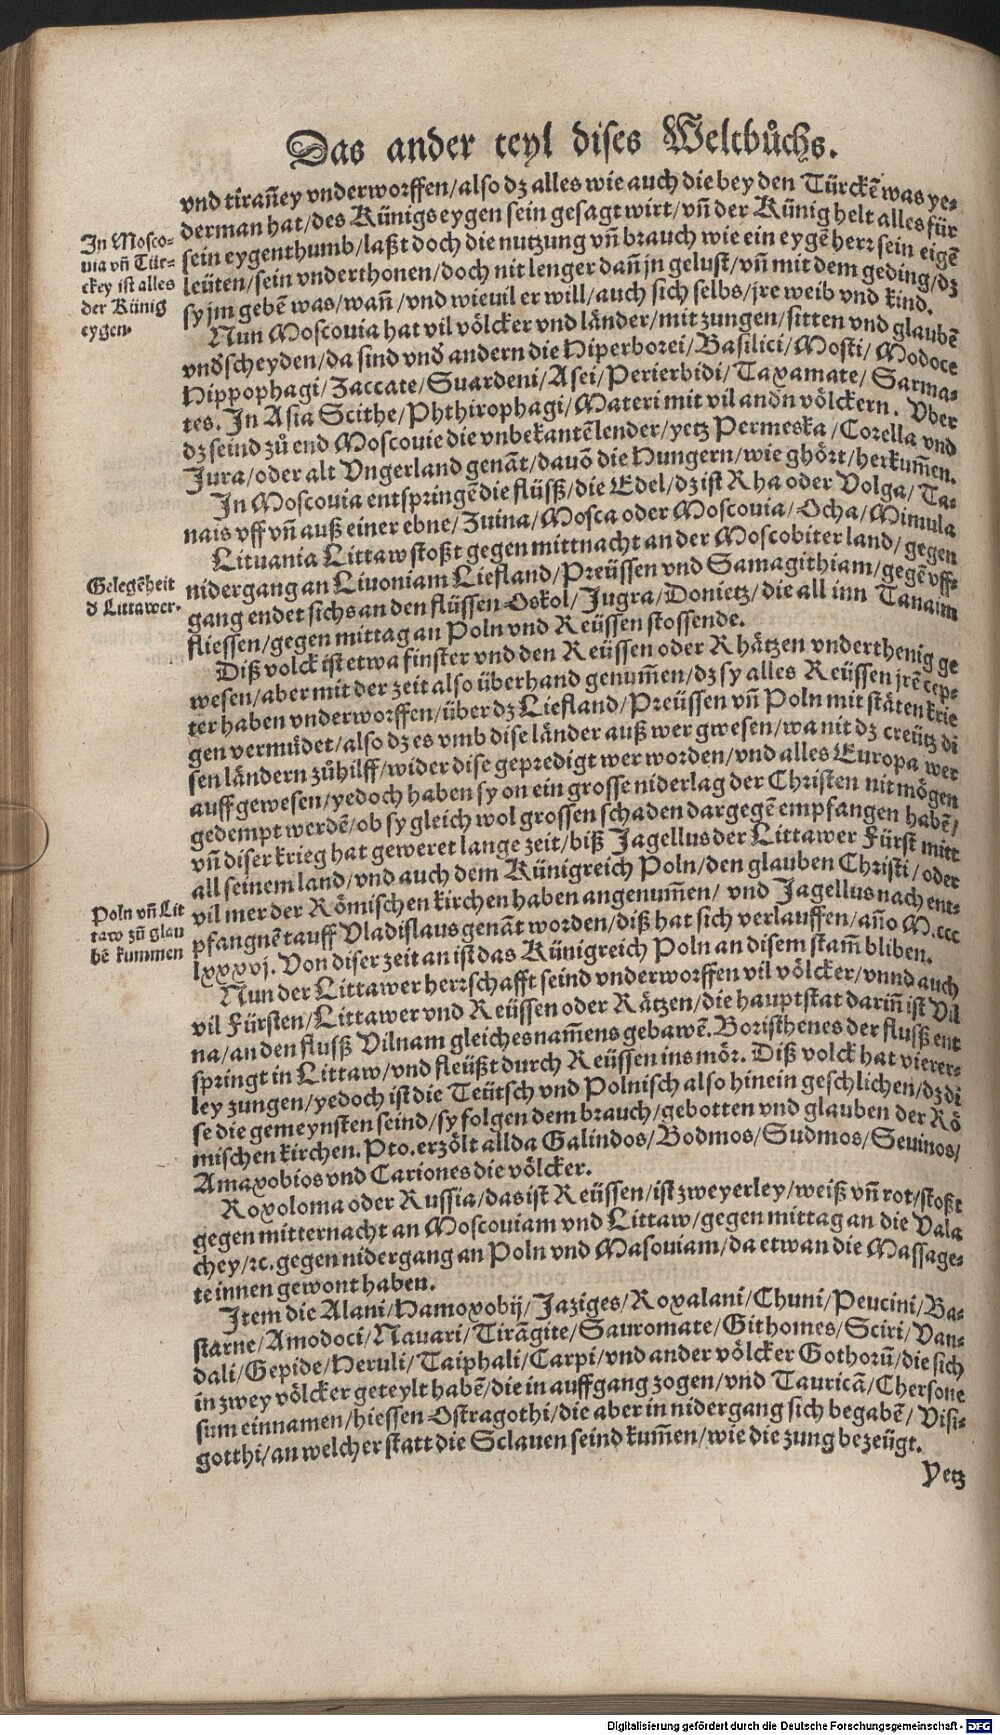 Das ander teyl dises Weltbůchs.
vnd tirañey vnderworffen/also dz alles wie auch die bey den Türckē was ye-
derman hat/des Künigs eygen sein gesagt wirt/vñ der Künig helt alles für
sein eygenthumb/laßt doch die nutzung vñ brauch wie ein eygē herr sein eigē
leüten/sein vnderthonen/doch nit lenger dañ jn gelust/vñ mit dem geding/dz
sy jm gebē was/wañ/vnd wieuil er will/auch sich selbs/jre weib vnd kind.
In Mosco-
uia vñ Tür-
ckey ist alles
der Künig
eygen.
Nun Moscouia hat vil völcker vnd länder/mit zungen/sitten vnd glaubē
vnd̕scheyden/da sind vnd̕ andern die Hiperborei/Basilici/Mosti/Modoce
Hippophagi/Zaccate/Suardeni/Asei/Perierbidi/Taxamate/Sarma-
tes. In Asia Scithe/Phthirophagi/Materi mit vil andn völckern. Vber
dz seind zů end Moscouie die vnbekantē lender/yetz Permeska/Corella vnd
Jura/oder alt Vngerland genāt/dauō die Hungern/wie ghört/herkum̄en.
In Moscouia entspringē die flüsß/die Edel/dz ist Rha oder Volga/Ta-
nais vff vñ auß einer ebne/Zuina/Mosca oder Moscouia/Ocha/Mimula
Lituania Littaw stoßt gegen mittnacht an der Moscobiter land/gegen
nidergang an Liuoniam Liefland/Preüssen vnd Samagithiam/gegē vff-
gang endet sichs an den flüssen Oskol/Jugra/Donietz/die all inn Tanaim
fliessen/gegen mittag an Poln vnd Reüssen stossende.
Gelegēheit
d Littawer.
Diß volck ist etwa finster vnd den Reüssen oder Rhätzen vnderthenig ge
wesen/aber mit der zeit also überhand genum̄en/dz sy alles Reüssen jrē cep-
ter haben vnderworffen/über dz Liefland/Preüssen vñ Poln mit stäten krie
gen vermüdet/also dz es vmb dise länder auß wer gwesen/wa nit dz creütz di
sen ländern zůhilff/wider dise gepredigt wer worden/vnd alles Europa wer
auff gewesen/yedoch haben sy on ein grosse niderlag der Christen nit mögen
gedempt werdē/ob sy gleich wol grossen schaden dargegē empfangen habē/
vñ diser krieg hat geweret lange zeit/biß Jagellus der Littawer Fürst mitt
all seinem land/vnd auch dem Künigreich Poln/den glauben Christi/oder
vil mer der Römischen kirchen haben angenum̄en/ vnd Jagellus nach ent-
pfangnē tauff Vladislaus genāt worden/diß hat sich verlauffen/año M.ccc
lxxxvj. Von diser zeit an ist das Künigreich Poln an disem stam̄ bliben.
Poln vñ Lit
taw zů glau
bē kummen
Nun der Littawer herrschafft seind vnderworffen vil völcker/vnnd auch
vil Fürsten/Littawer vnd Reüssen oder Rätzen/die hauptstat dariñ ist Vil
na/an den flusß Vilnam gleiches nam̄ens gebawē. Boristhenes der flusß ent
springt in Littaw/vnd fleüßt durch Reüssen ins mör. Diß volck hat vierer-
ley zungen/yedoch ist die Teütsch vnd Polnisch also hinein geschlichen/dz di
se die gemeynsten seind/sy folgen dem brauch/gebotten vnd glauben der Rö
mischen kirchen. Pto. erzölt allda Galindos/Bodmos/Sudmos/Seuinos/
Amaxobios vnd Cariones die völcker.
Roxoloma oder Russia/das ist Reüssen/ist zweyerley/weiß vñ rot/stoßt
gegen mitternacht an Moscouiam vnd Littaw/gegen mittag an die Vala
chey/ꝛc. gegen nidergang an Poln vnd Masouiam/da etwan die Massage-
te innen gewont haben.
Item die Alani/Hamoxobij/Jaziges/Roxalani/Chuni/Peucini/Ba-
starne/Amodoci/Nauari/Tirāgite/Sauromate/Githomes/Sciri/Van-
dali/Gepide/Heruli/Taiphali/Carpi/vnd ander völcker Gothorū/die sich
in zwey völcker geteylt habē/die in auffgang zogen/vnd Tauricā/Chersone
sum einnamen/hiessen Ostragothi/die aber in nidergang sich begabē/ Visi-
gotthi/an welcher statt die Sclauen seind kum̄en/wie die zung bezeügt.
Yetz
Digitalisierung gefördert durch die Deutsche Forschungsgemeinschaft - DFG